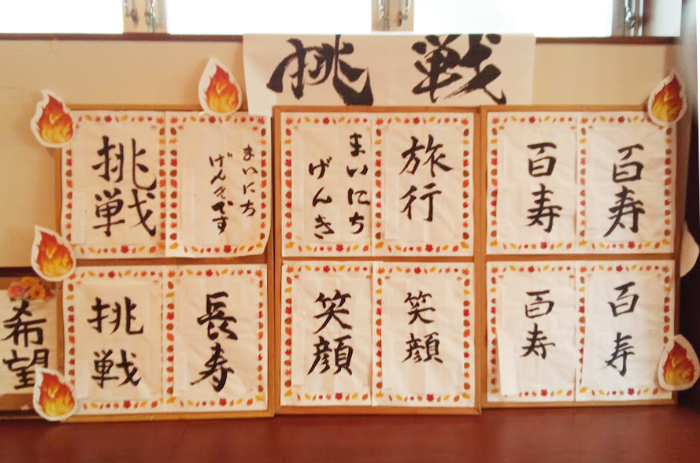 挑戦
挑戦
まいにち
げんきです
まいにち
げんき
旅行
百寿
百寿
希望
挑戦
長寿
笑顔
笑顔
百寿
百寿